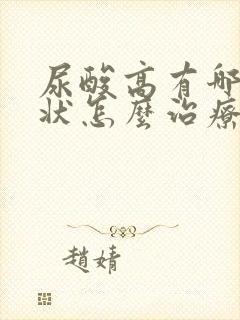 尿酸高有哪
状怎麼治療
趙婧